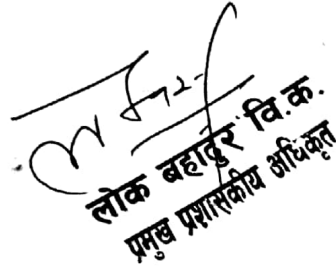 लोक बहादुर वि.क.
प्रमुख प्रशासकीय अधिकृत